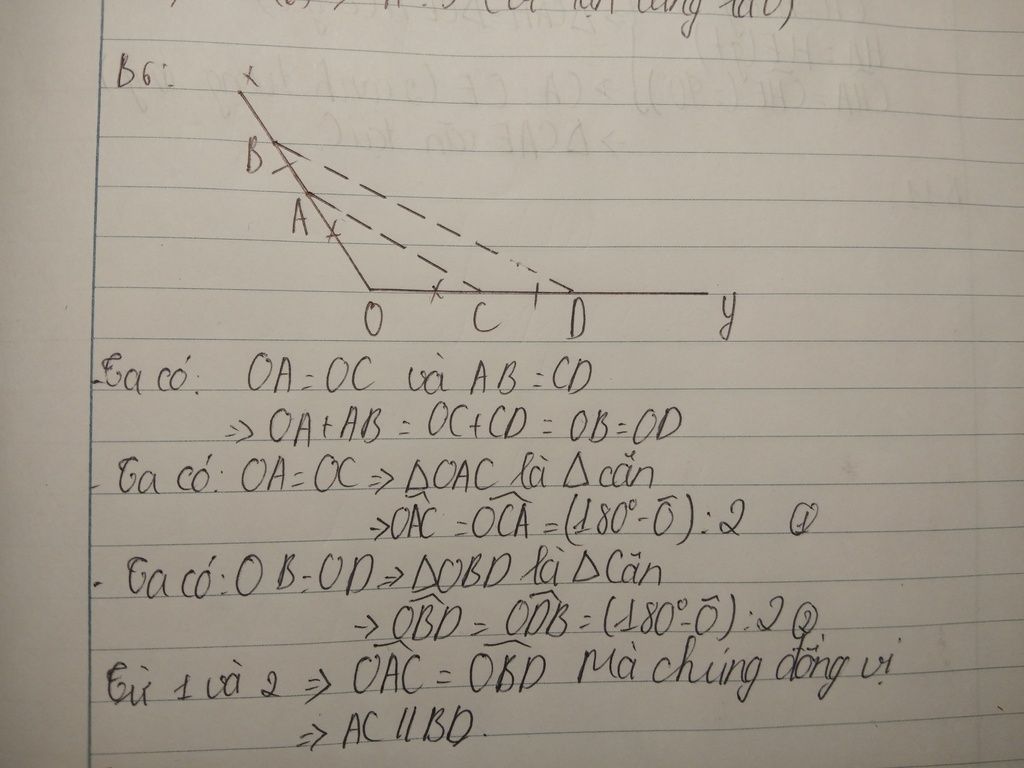 B6:
x
B
A
O C D y
- Ta có: OA = OC và AB = CD
=> OA + AB = OC + CD = OB = OD
- Ta có: OA = OC => ΔOAC là Δ cân
=> \widehat{OAC} = \widehat{OCA} = (180° - Ô) : 2 ①
- Ta có: OB = OD => ΔOBD là Δ Cân
-> \widehat{OBD} = \widehat{ODB} = (180° - Ô) : 2 ②
Từ 1 và 2 => \widehat{OAC} = \widehat{OBD} Mà chúng đồng vị
=> AC // BD.